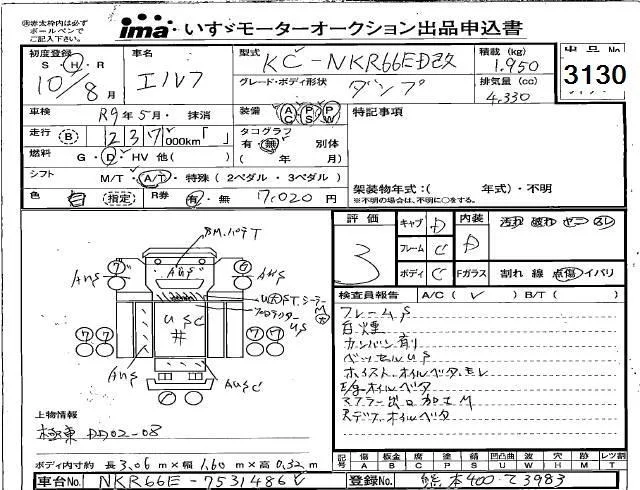 ※赤太枠内は必ず
ボールペンで
ご記入下さい。
ima いすゞモーターオークション出品申込書
初度登録 S・H・R 10/8月
車名 エルフ
型式 KC-NKR66ED改
積載(kg) 1.950
出品No 3130
グレード・ボディ形状 ダンプ
排気量(cc) 4,330
車検 R9年5月・抹消
装備 AC PS PW
特記事項
走行 B 237,000km「 」
タコグラフ 有・無 別体
燃料 G・D・HV 他( )
( 年 月)
シフト M/T・A/T・特殊(2ペダル・3ペダル)
色 白 (指定) R券 有・無 7,020円
架装物年式:( 年式)・不明
※不明の場合は、不明に○をする。
評価 3
キャブ D
フレーム C
ボディ C
内装 D
汚れ 破れ ヤニ スレ
Fガラス 割れ 線 点傷 イバリ
検査員報告 A/C( ✓ ) B/T( )
フレームS
白煙
カンバン有り
ベッセルUS
ホイスト.オイルベタ.モレ
E/gオイルベタ
マフラー出口加工M
Rデフ.オイルベタ
B.M.パテT
AUS
AUS
AUS
USC
#
US
AUS
AUSC
⑦
⑥
⑦⑦
⑦⑦
上物情報
極東 DD02-08
ボディ内寸約 長3.06m×幅1.60m×高0.32m
記号 傷 板金 腐 塗 錆 凹凸曲 波 穴 跡 レツ割
A B C P S U W H M T
車台No. NKR66E-7531486
登録No. 熊本400-て3983